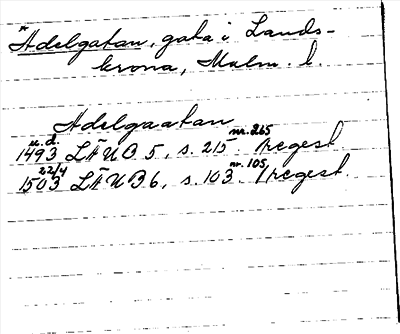 *Adelgatan, gata i Lands-
krona, Malm. l.
Adelgaatan
u.d. nr. 265
1493, LÄUB 5, s. 215. /regest.
22/4 nr. 105
1503, LÄUB 6, s. 103. /regest.